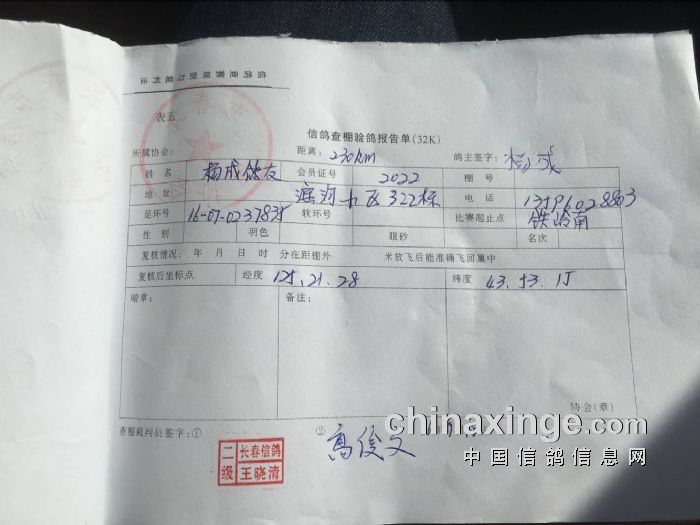 信鸽竞赛规则与裁判法
表五
信鸽查棚验鸽报告单(32K)
所属协会: 距离: 230KM 鸽主签字: 杨成
姓名 杨成鸽友 会员证号 2022 棚号
地址 322栋 电话 13596028803
足环号 16-07-0237835 软环号 比赛起止点 铁岭南
性别 羽色 眼砂 名次
复核情况: 年 月 日 时 分在距棚外 米放飞后能准确飞回巢中
复核后坐标点 经度 125.21.28 纬度 43.53.15
暗章: 备注:
协会(章)
查棚裁判员签字:① ② 高俊文
二级 长春信鸽 王晓清
chinaxinge.com
中国信鸽信息网